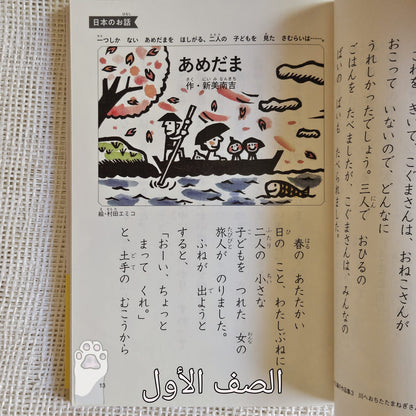 こって いないので、どんなに
うれしかったでしょう。三人で おひるの
ごはんを たべましたが、こぐまさんは、みんなの
ばいの ばいも たべられました。
川へおちたたまねぎさ
日本のお話
一つしか ない あめだまを ほしがる、二人の 子どもを 見た さむらいは……。
あめだま
作・新美南吉
絵・村田エミコ
春の あたたかい
日の こと、わたしぶねに
二人の 小さな
子どもを つれた 女の
旅人が のりました。
ふねが 出ようと
すると、
「おーい、ちょっと
まって くれ。」
と、土手の むこうから
13
الصف الأول